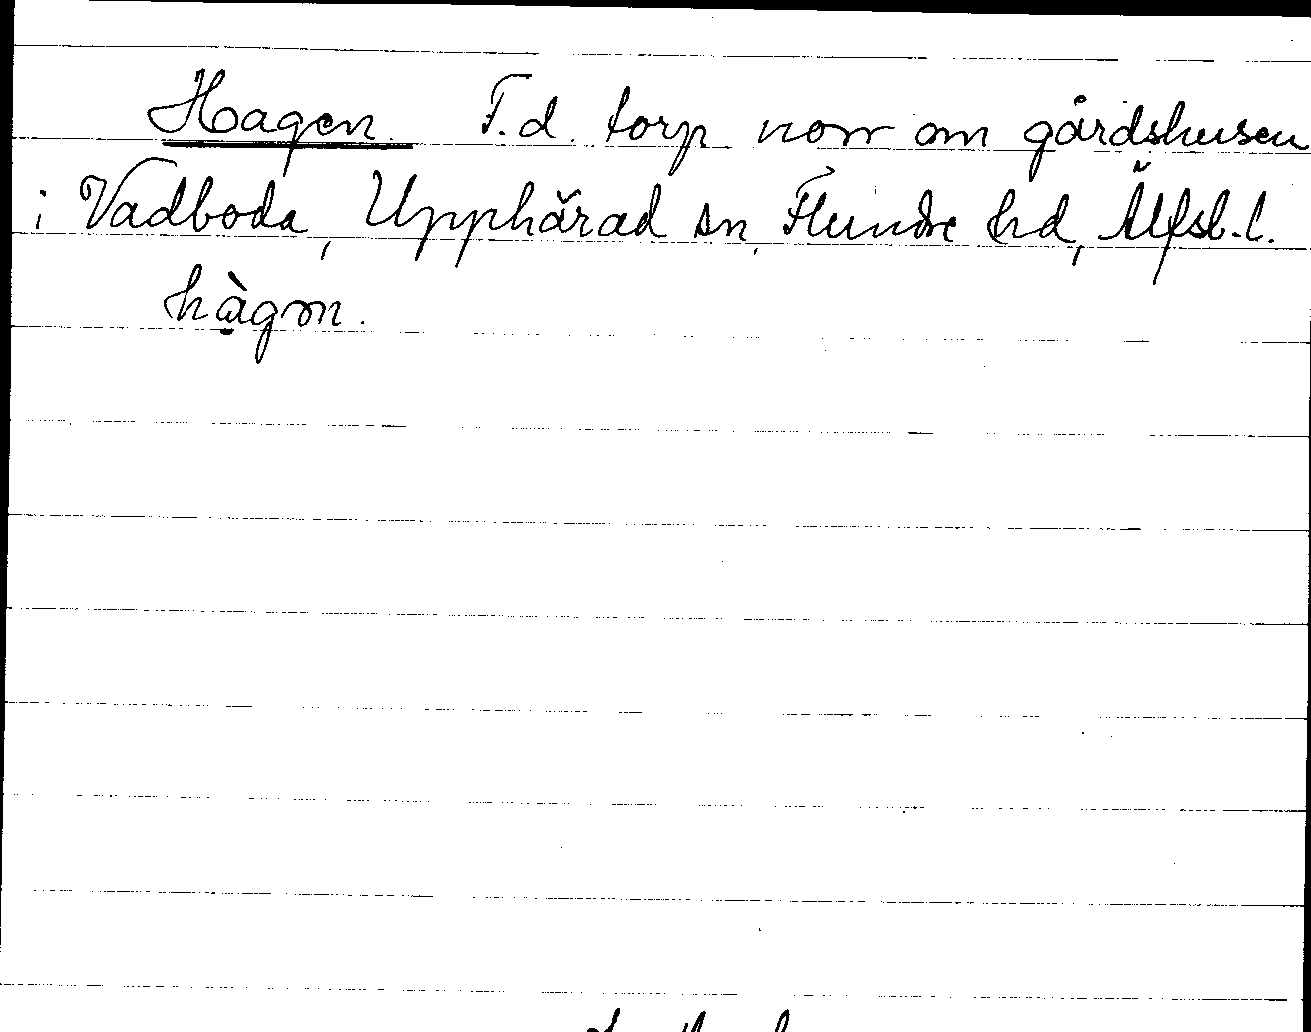 Hagen. F.d. torp norr om gårdshusen
i Vadboda, Upphärad sn, Flundre hd, Älfsb. l.
hàgɷn.